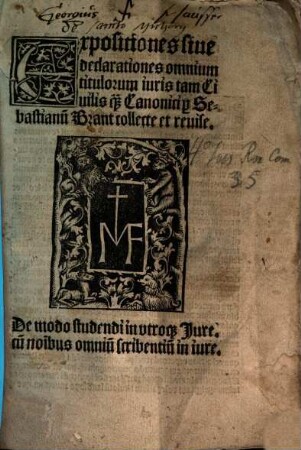 Georgius
de sancto
Expositiones siue
declarationes omnium
titulorum iuris tam Ci
uilis qȝ Canonici ꝑ Se-
bastianū Brant collecte et reuise.
4° Jus Rm Com
35
MF
De modo studendi in vtroqȝ Jure.
cū noībus omniū scribentiū in iure.